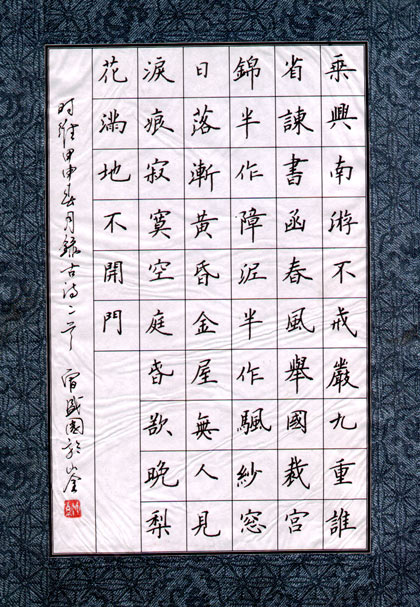 乘興南游不戒嚴九重誰
省諫書函春風舉國裁宮
錦半作障泥半作颿紗窗
日落漸黃昏金屋無人見
淚痕寂寞空庭旾欲晚梨
花滿地不開門
时維甲申春月錄古诗二首